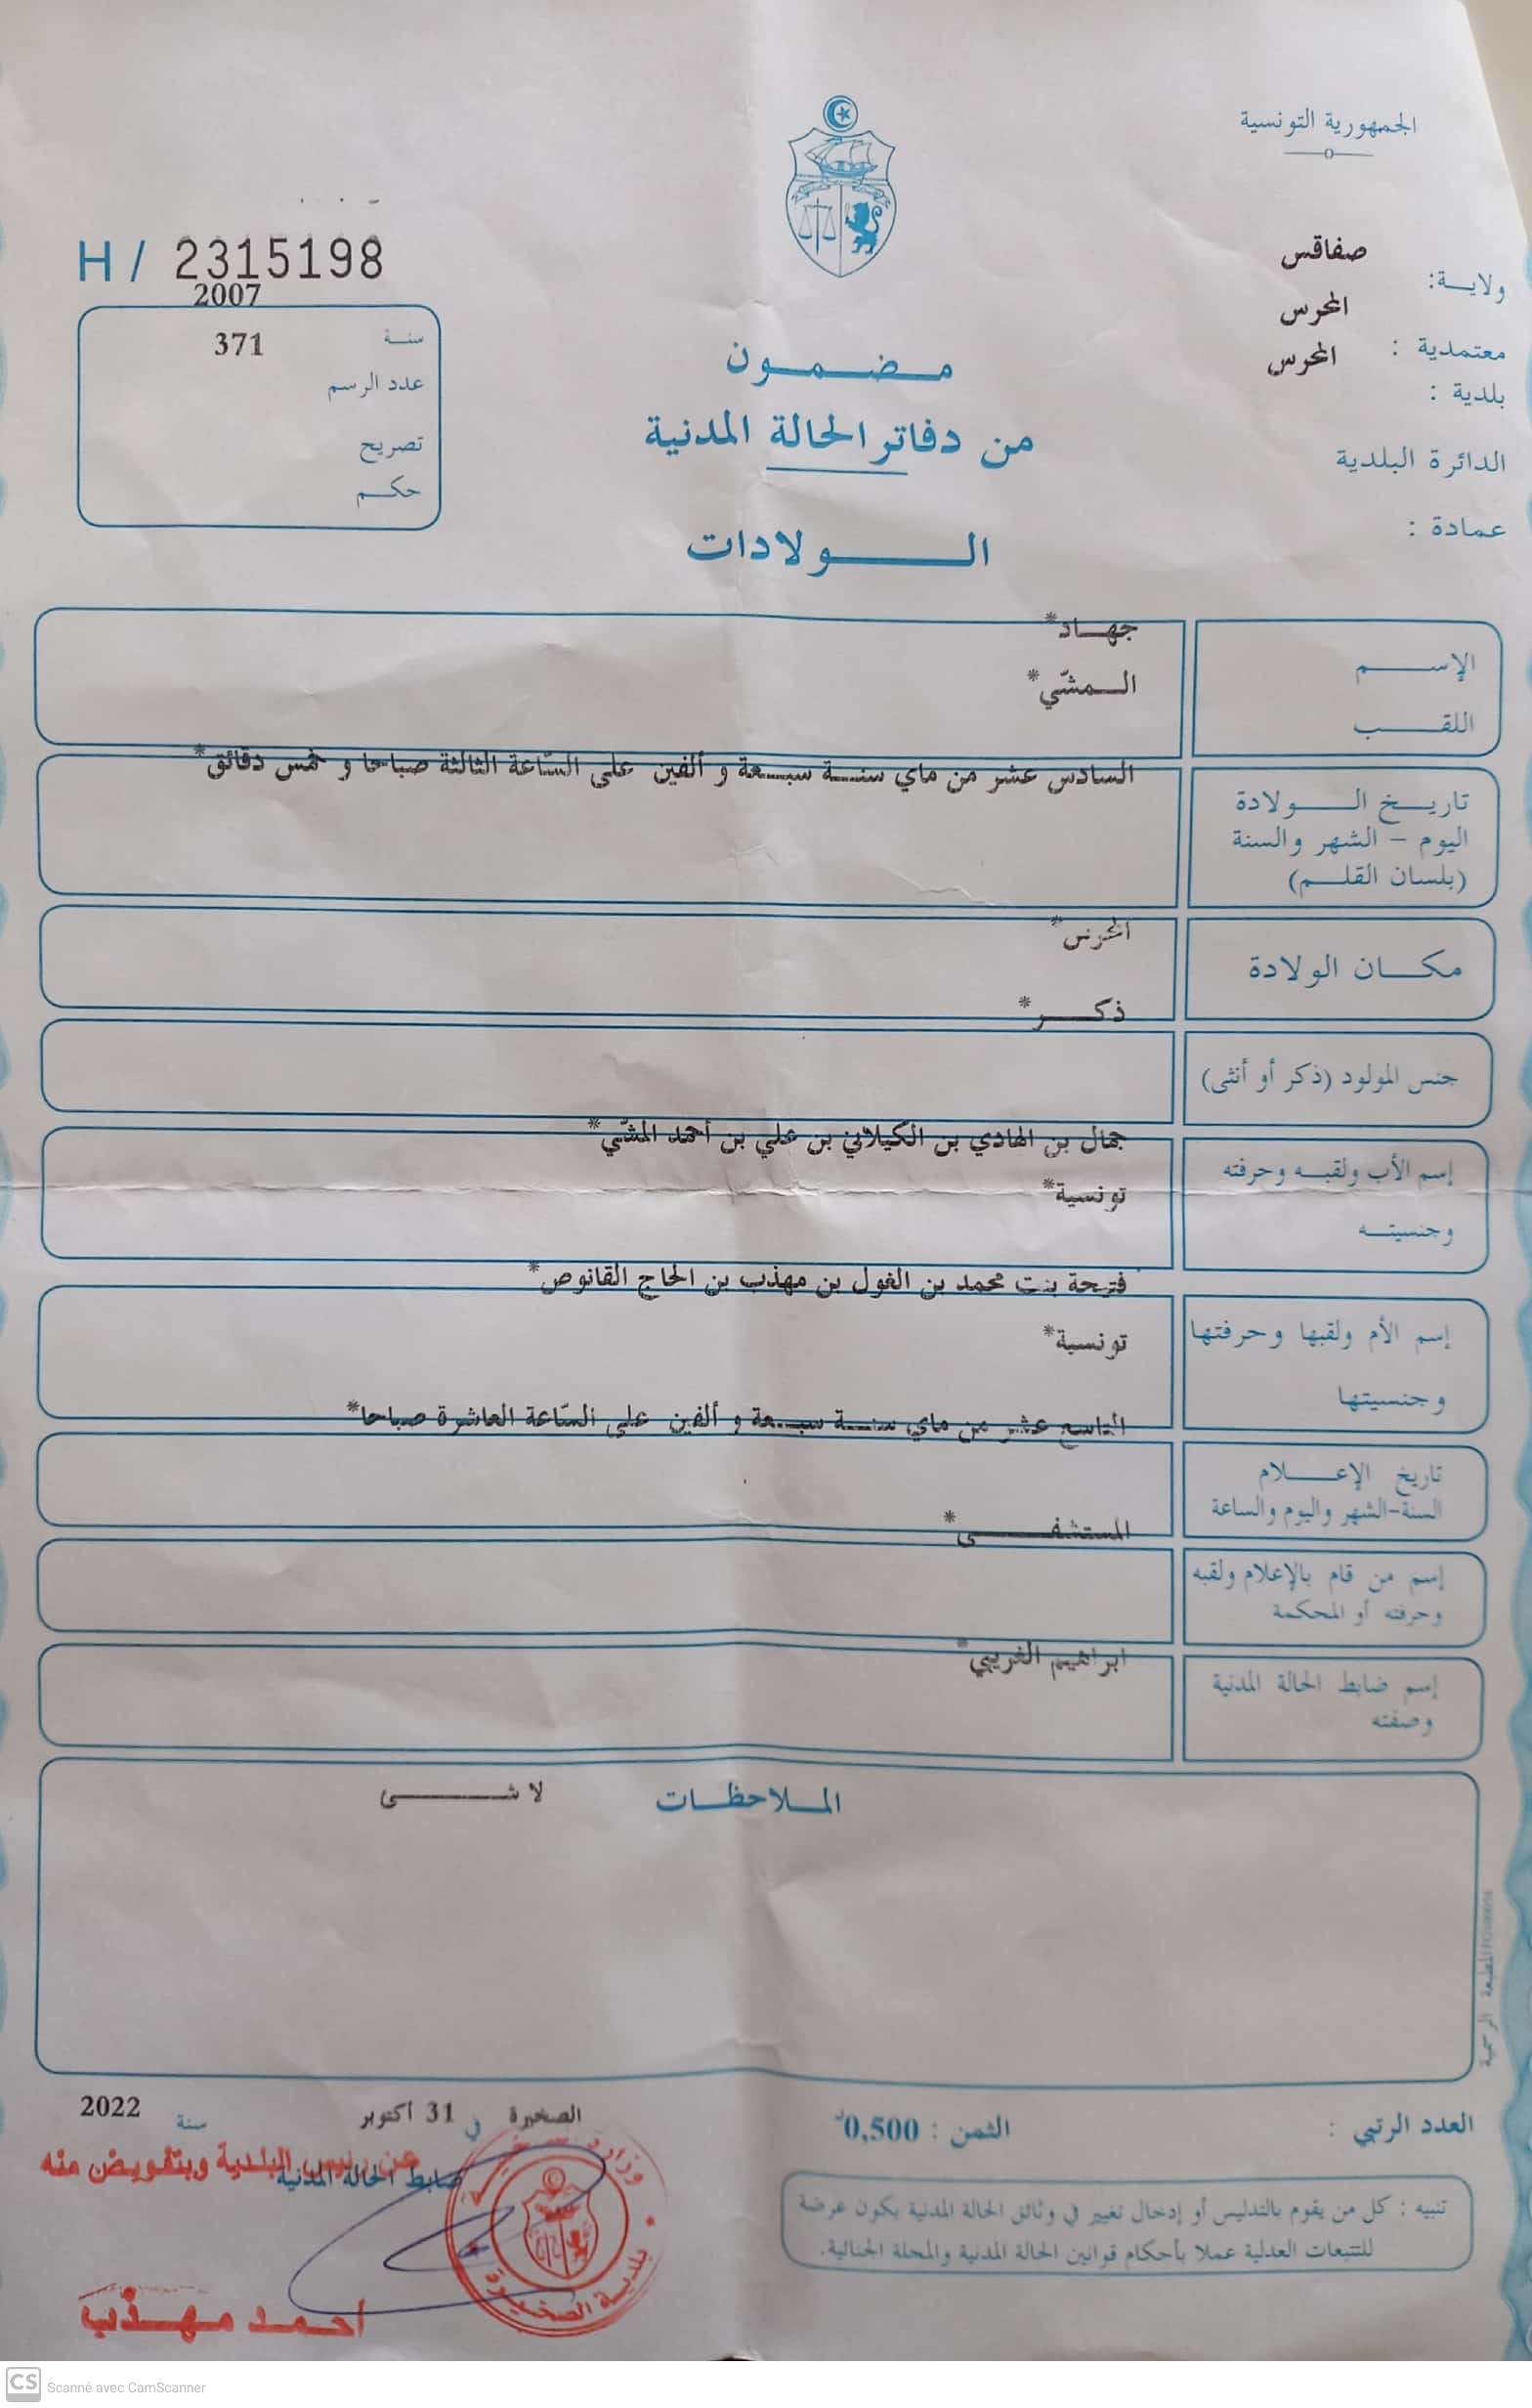 الجمهورية التونسية
H / 2315198
ولاية: صفاقس
معتمدية : المحرس
بلدية : المحرس
الدائرة البلدية
عمادة :
2007
سنة 371
عدد الرسم
تصريح
حكم
مضمون
من دفاتر الحالة المدنية
الولادات
الإسم جهاد*
اللقب المشّي*
تاريخ الولادة السادس عشر من ماي سنة سبعة و ألفين على السّاعة الثالثة صباحا و خمس دقائق*
اليوم – الشهر والسنة
(بلسان القلم)
مكان الولادة المحرس*
جنس المولود (ذكر أو أنثى) ذكر*
إسم الأب ولقبه وحرفته جمال بن الهادي بن الكيلاني بن علي بن أحمد المشّي*
وجنسيته تونسية*
إسم الأم ولقبها وحرفتها فتيحة بنت محمد بن الغول بن مهذب بن الحاج القانوص*
وجنسيتها تونسية*
تاريخ الإعلام التاسع عشر من ماي سنة سبعة و ألفين على السّاعة العاشرة صباحا*
السنة-الشهر واليوم والساعة
إسم من قام بالإعلام ولقبه المستشفى*
وحرفته أو المحكمة
إسم ضابط الحالة المدنية ابراهيم الغريبي*
وصفته
الملاحظات لاشى
المطبعة الرسمية
العدد الرتبي :
الثمن : 0,500د
الصخيرة في 31 أكتوبر سنة 2022
ضابط الحالة المدنية
عن رئيس البلدية وبتفويض منه
بلدية الصخيرة
أحمد مهذب
تنبيه : كل من يقوم بالتدليس أو إدخال تغيير في وثائق الحالة المدنية يكون عرضة
للتتبعات العدلية عملا بأحكام قوانين الحالة المدنية والمجلة الجنائية.
CS Scanné avec CamScanner